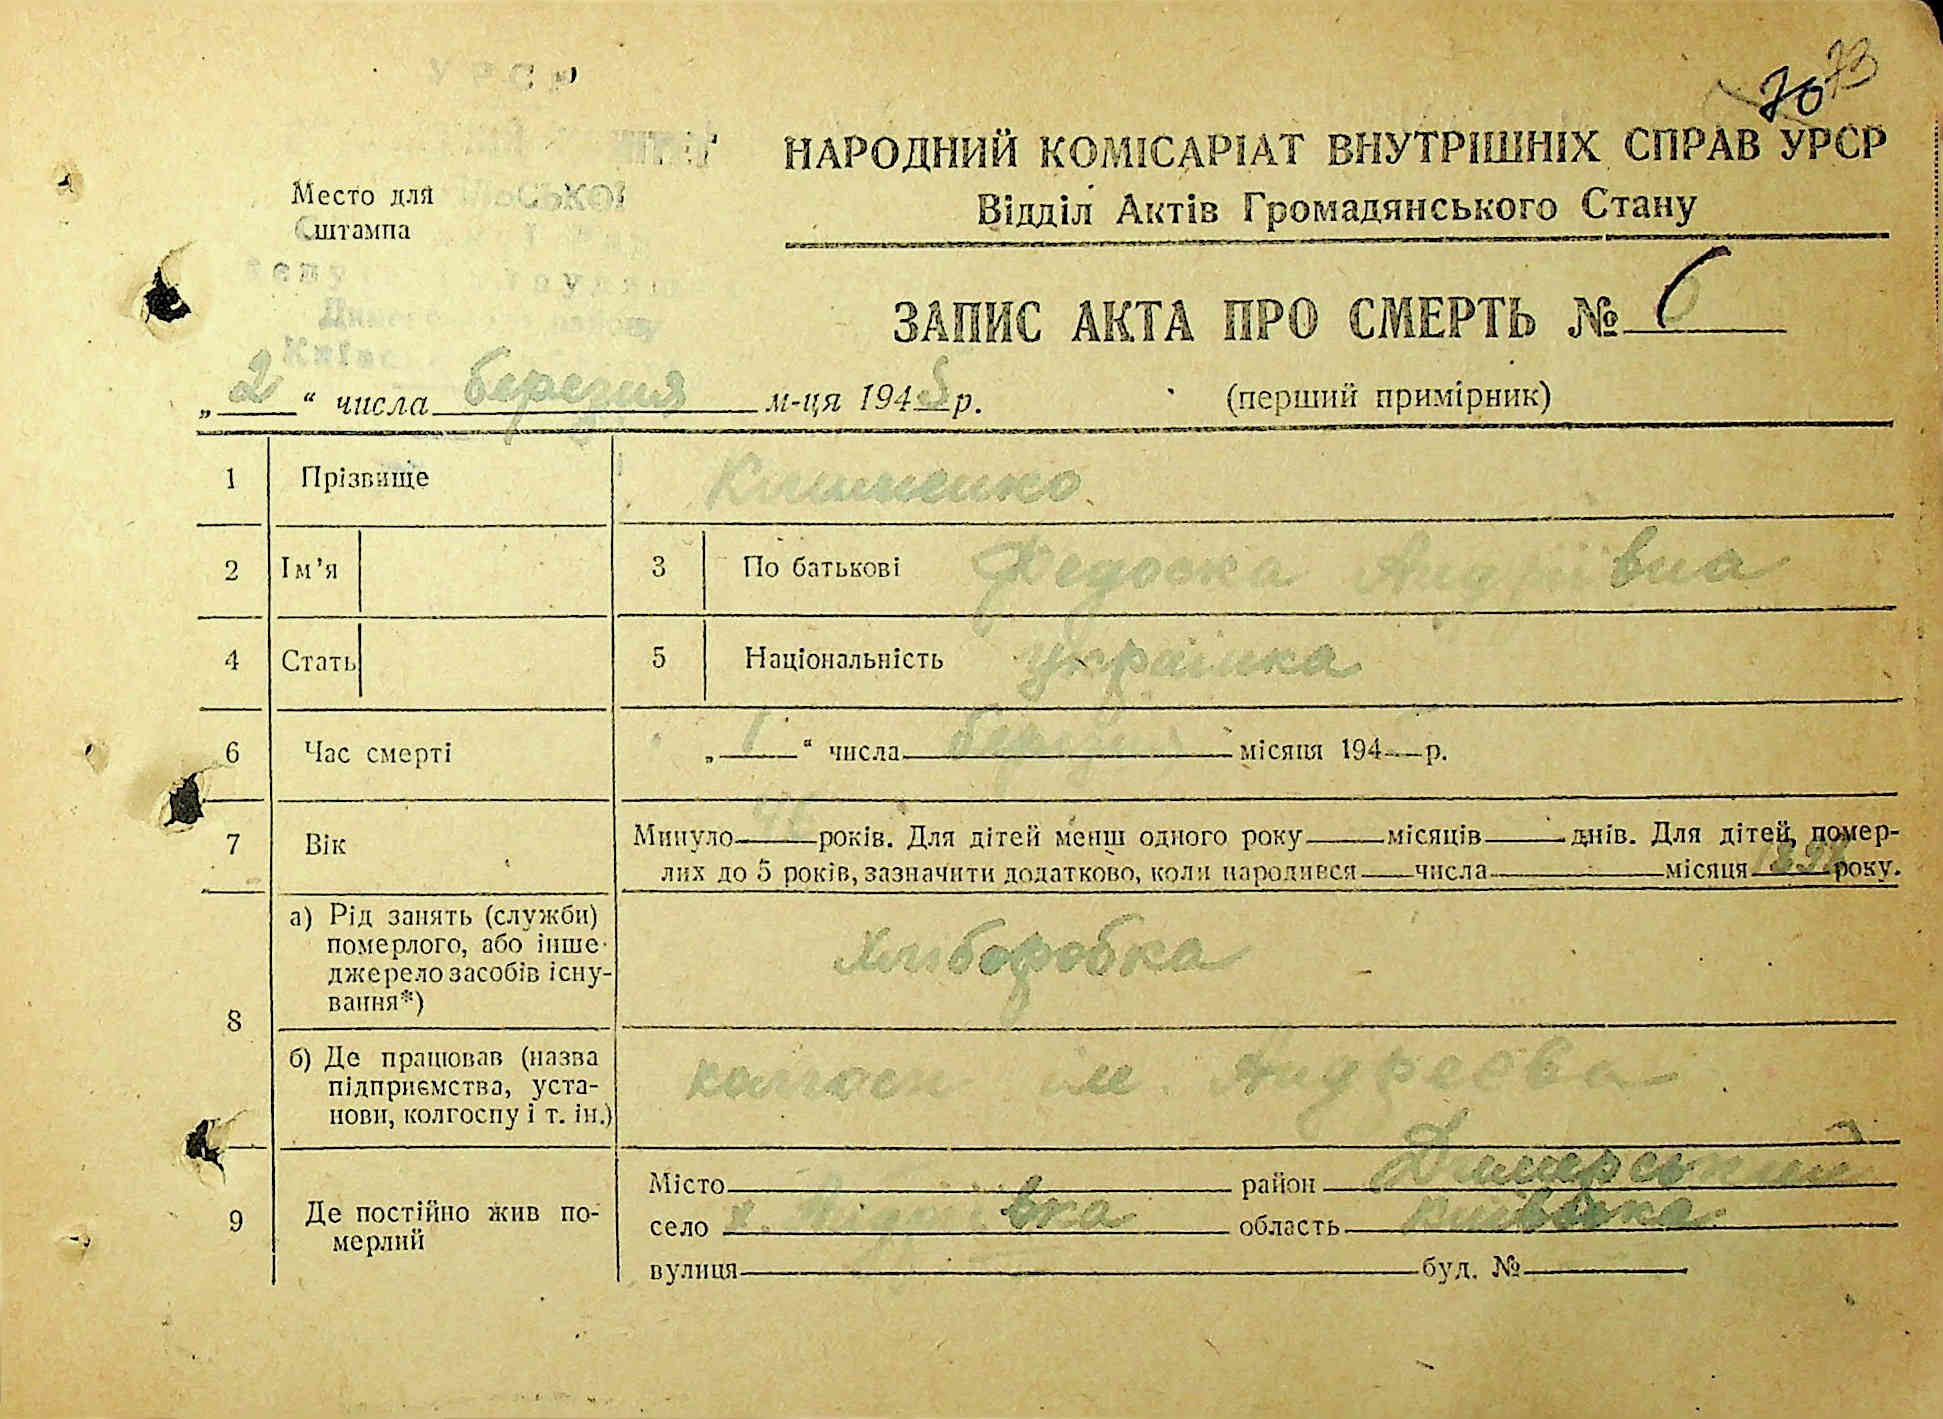 70 73
УРСР
НАРОДНИЙ КОМІСАРІАТ ВНУТРІШНІХ СПРАВ УРСР
Відділ Актів Громадянського Стану
Место для
штампа
ЗАПИС АКТА ПРО СМЕРТЬ № 6
„2“ числа березня м-ця 1945 р.
(перший примірник)
1 Прізвище Клименко
2 Ім'я 3 По батькові Федоска Андріївна
4 Стать 5 Національність українка
6 Час смерті „1“ числа березня місяця 194 р.
7 Вік Минуло років. Для дітей менш одного року місяців днів. Для дітей, помер-
лих до 5 років, зазначити додатково, коли народився числа місяця року.
8 а) Рід занять (служби) померлого, або інше джерело засобів існу-вання*) хліборобка
б) Де працював (назва підприємства, уста-нови, колгоспу і т. ін.) колгосп ім. Андреєва
9 Де постійно жив по-мерлий
Місто район Димерський
село х. Андріївка область Київська
вулиця буд. №